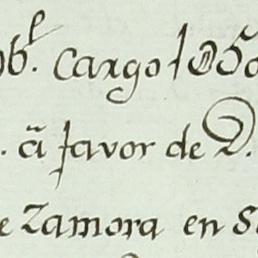 ob.l cargo 1050
. ã favor de D.
e Zamora en S